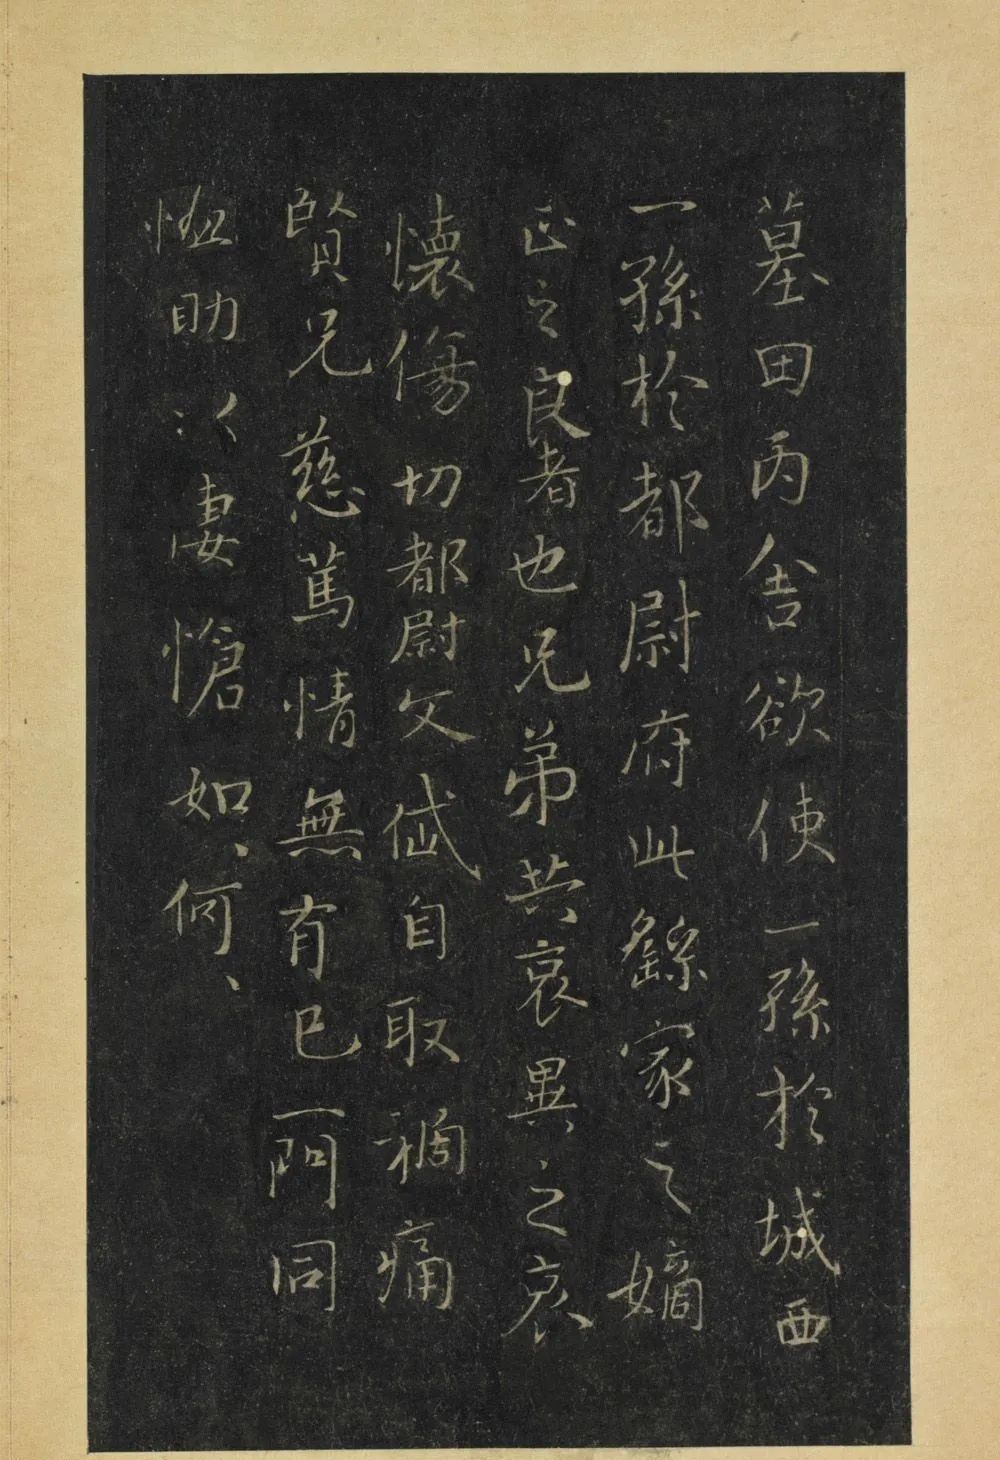 墓田丙舍欲使一孫於城西
一孫於都尉府此繇家之嫡
正之良者也兄弟共哀異之哀
懷傷切都尉文岱自取禍痛
賢兄慈篤情無有已一門同
恤助以妻愴如、何、